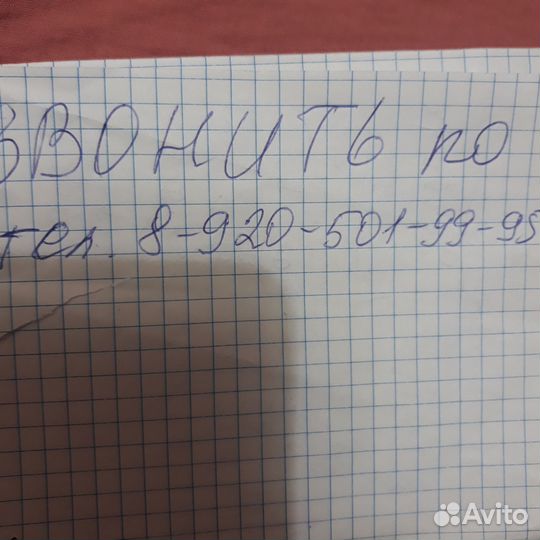 ЗВОНИТЬ по
тел. 8-920-501-99-95
Avito